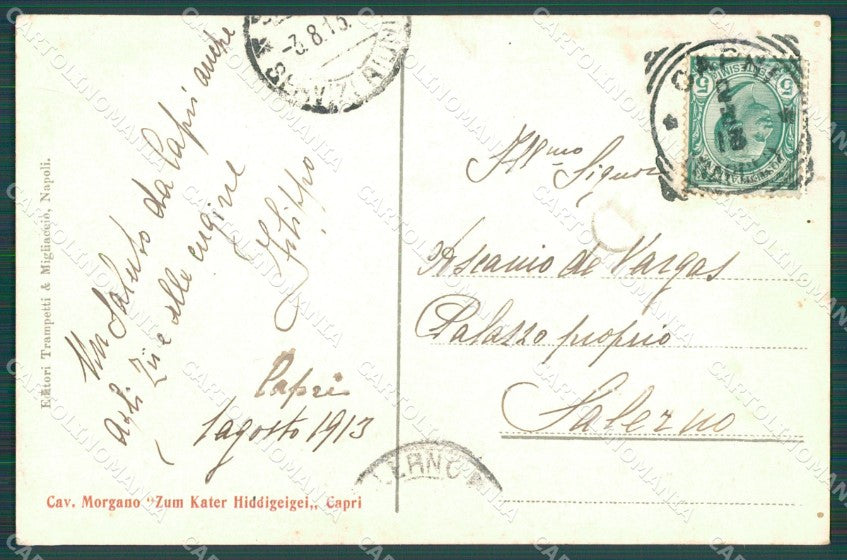 Un saluto da Capri anche
agli Zii e alle cugine
Filippo
Capri
1 agosto 1913
Ill.mo Signor
Ascanio de Vargas
Palazzo proprio
Salerno
Editori Trampetti & Migliaccio, Napoli.
Cav. Morgano "Zum Kater Hiddigeigei„ Capri
-3.8.13.
CAPRI
LERNO
5 5
CARTOLINOMANIA